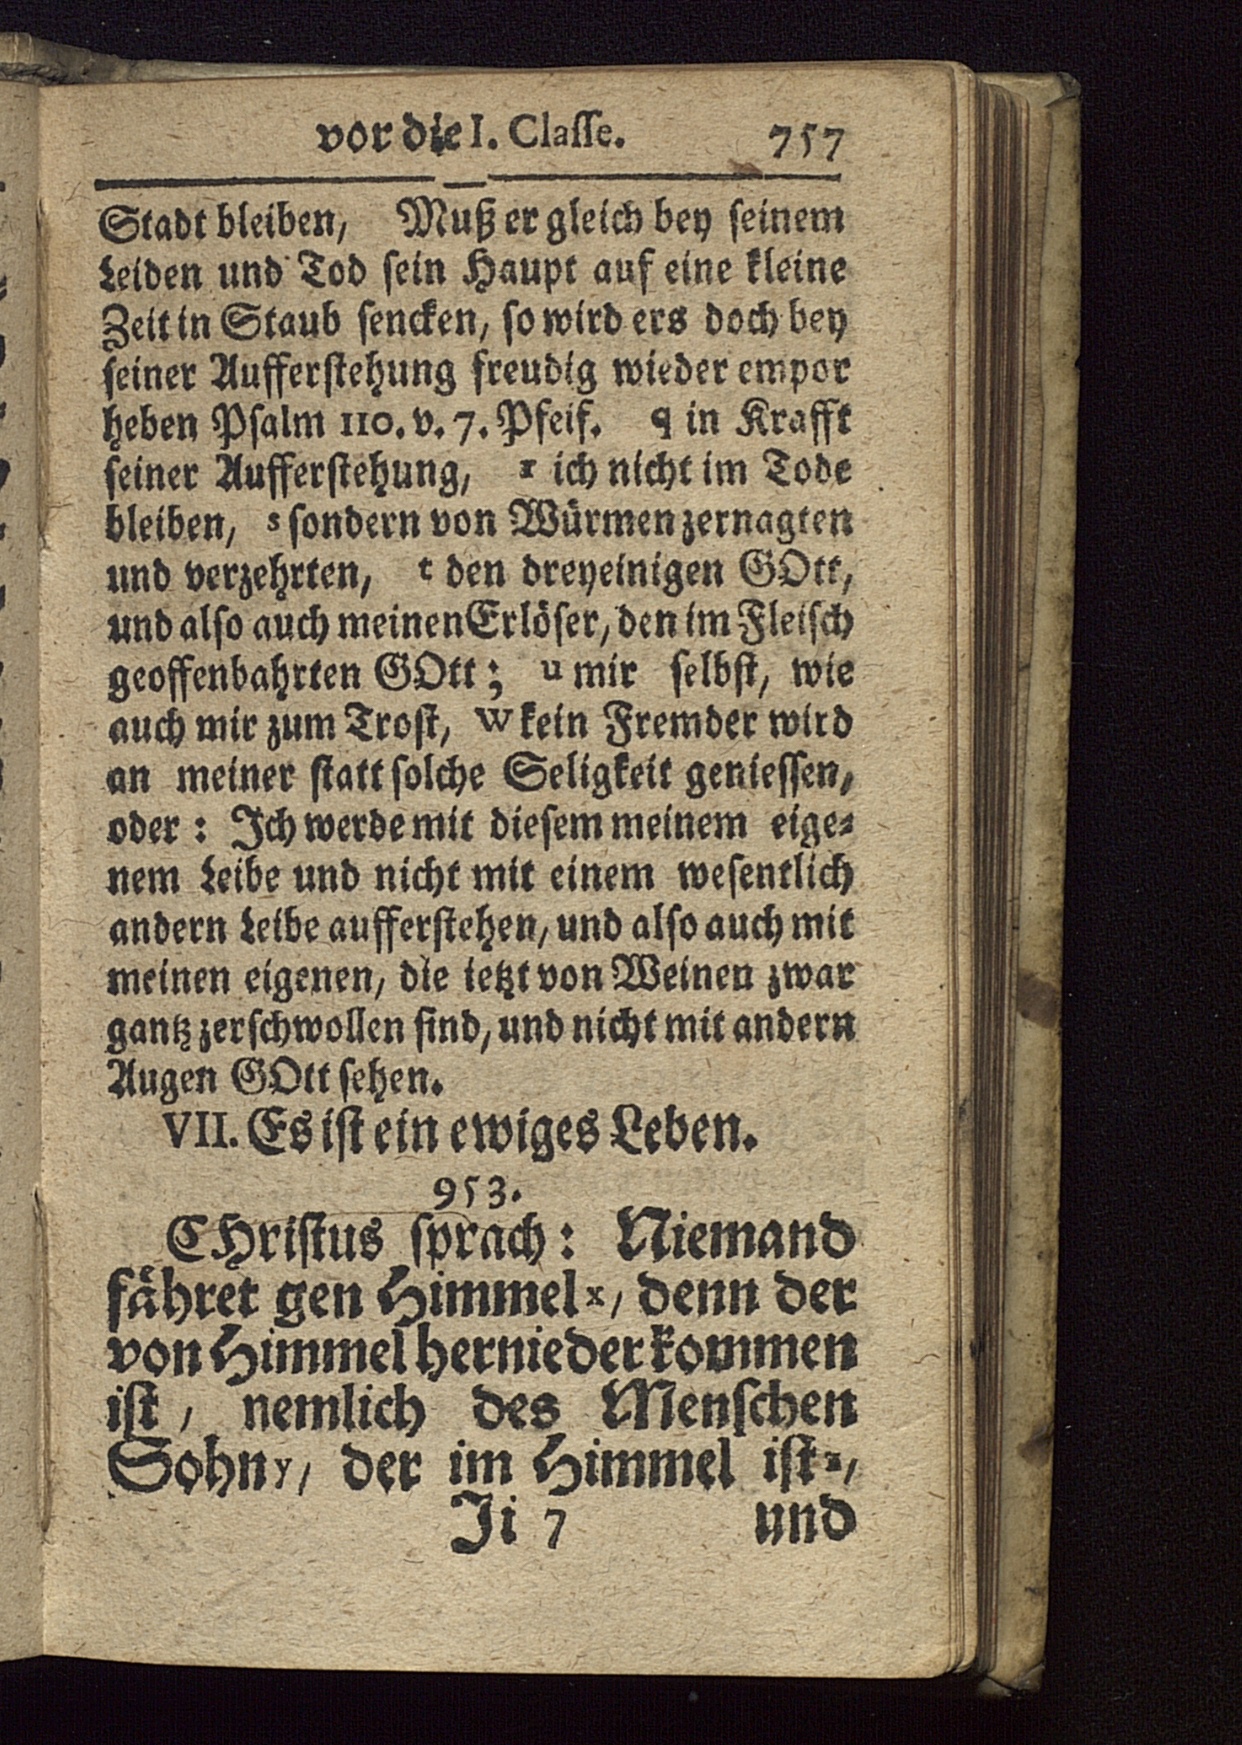 vor die I. Classe. 757
Stadt bleiben, Muß er gleich bey seinem
Leiden und Tod sein Haupt auf eine kleine
Zeit in Staub sencken, so wird ers doch bey
seiner Aufferstehung freudig wieder empor
heben Psalm 110. v. 7. Pfeif. q in Krafft
seiner Aufferstehung, r ich nicht im Tode
bleiben, s sondern von Würmen zernagten
und verzehrten, t den dreyeinigen GOtt,
und also auch meinen Erlöser, den im Fleisch
geoffenbahrten GOtt; u mir selbst, wie
auch mir zum Trost, w kein Fremder wird
an meiner statt solche Seligkeit geniessen,
oder: Ich werde mit diesem meinem eige-
nem Leibe und nicht mit einem wesentlich
andern Leibe aufferstehen, und also auch mit
meinen eigenen, die ietzt von Weinen zwar
gantz zerschwollen sind, und nicht mit andern
Augen GOtt sehen.
VII. Es ist ein ewiges Leben.
953.
CHristus sprach: Niemand
fähret gen Himmel x, denn der
von Himmel hernieder kommen
ist, nemlich des Menschen
Sohn y, der im Himmel ist z,
Ii 7 und